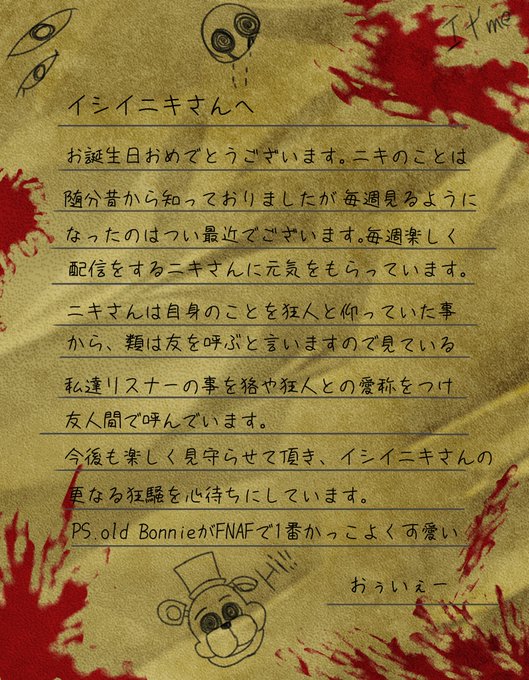 It's me
イシイニキさんへ
お誕生日おめでとうございます。ニキのことは
随分昔から知っておりましたが毎週見るように
なったのはつい最近でございます。毎週楽しく
配信をするニキさんに元気をもらっています。
ニキさんは自身のことを狂人と仰っていた事
から、類は友を呼ぶと言いますので見ている
私達リスナーの事を狢や狂人との愛称をつけ
友人間で呼んでいます。
今後も楽しく見守らせて頂き、イシイニキさんの
更なる狂騒を心待ちにしています。
PS.old BonnieがFNAFで1番かっこよくて可愛い
おぅいぇー
Hi!!